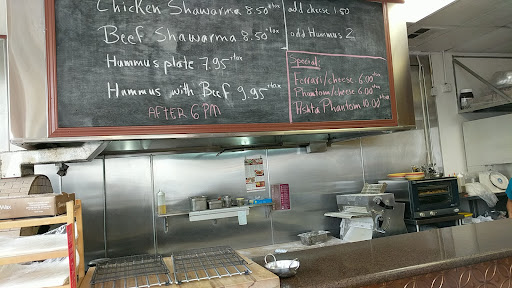 Chicken Shawarma 8.50+tax
Beef Shawarma 8.50+tax
Hummus plate 7.95+tax
Hummus with Beef 9.95+tax
AFTER 6 PM
add cheese 1.50
add Hummus 2
Special:
Ferrari/cheese 6.00+tax
Phantom/cheese 6.00+tax
Ashta Phantom 10.00+tax